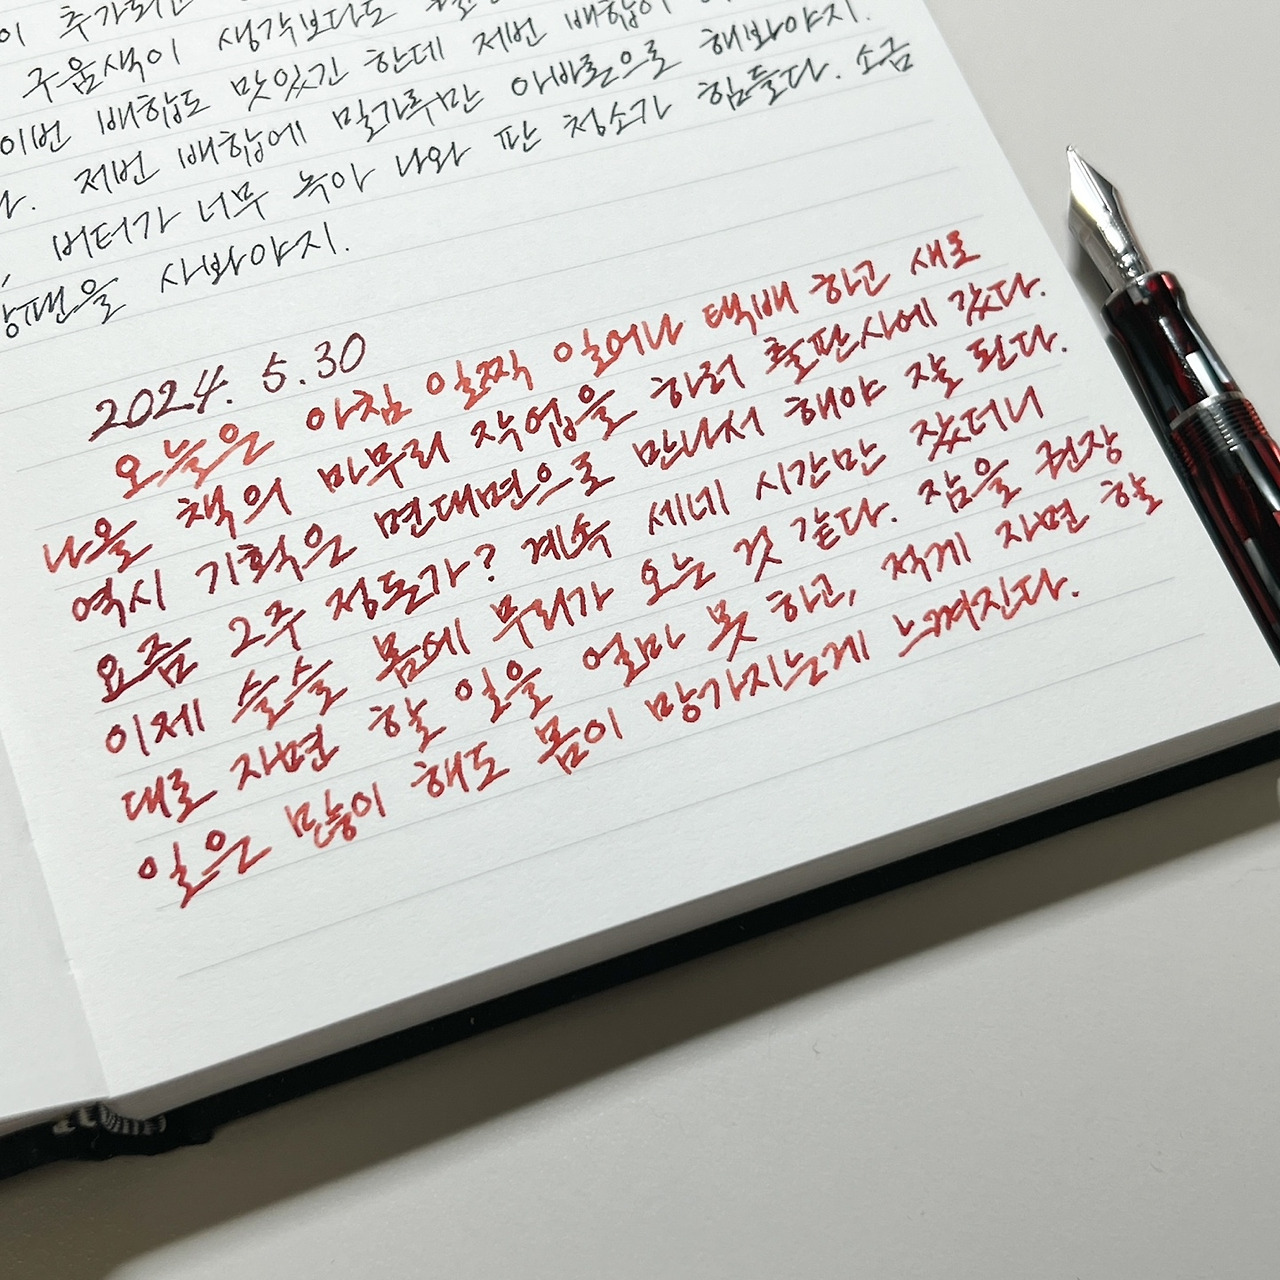 이 추가되
구움색이 생각보다도
이번 배합도 맛있긴 한데 저번 배합이
저번 배합에 밀가루만 아바론으로 해봐야지.
버터가 너무 녹아 나와 판 청소가 힘들다. 소금
팡팬을 사봐야지.
2024. 5. 30
오늘은 아침 일찍 일어나 택배 하고 새로
나올 책의 마무리 작업을 하러 출판사에 갔다.
역시 기획은 면대면으로 만나서 해야 잘 된다.
요즘 2주 정돈가? 계속 세네 시간만 잤더니
이제 슬슬 몸에 무리가 오는 것 같다. 잠을 권장
대로 자면 할 일을 얼마 못 하고, 적게 자면 할
일은 많이 해도 몸이 망가지는게 느껴진다.